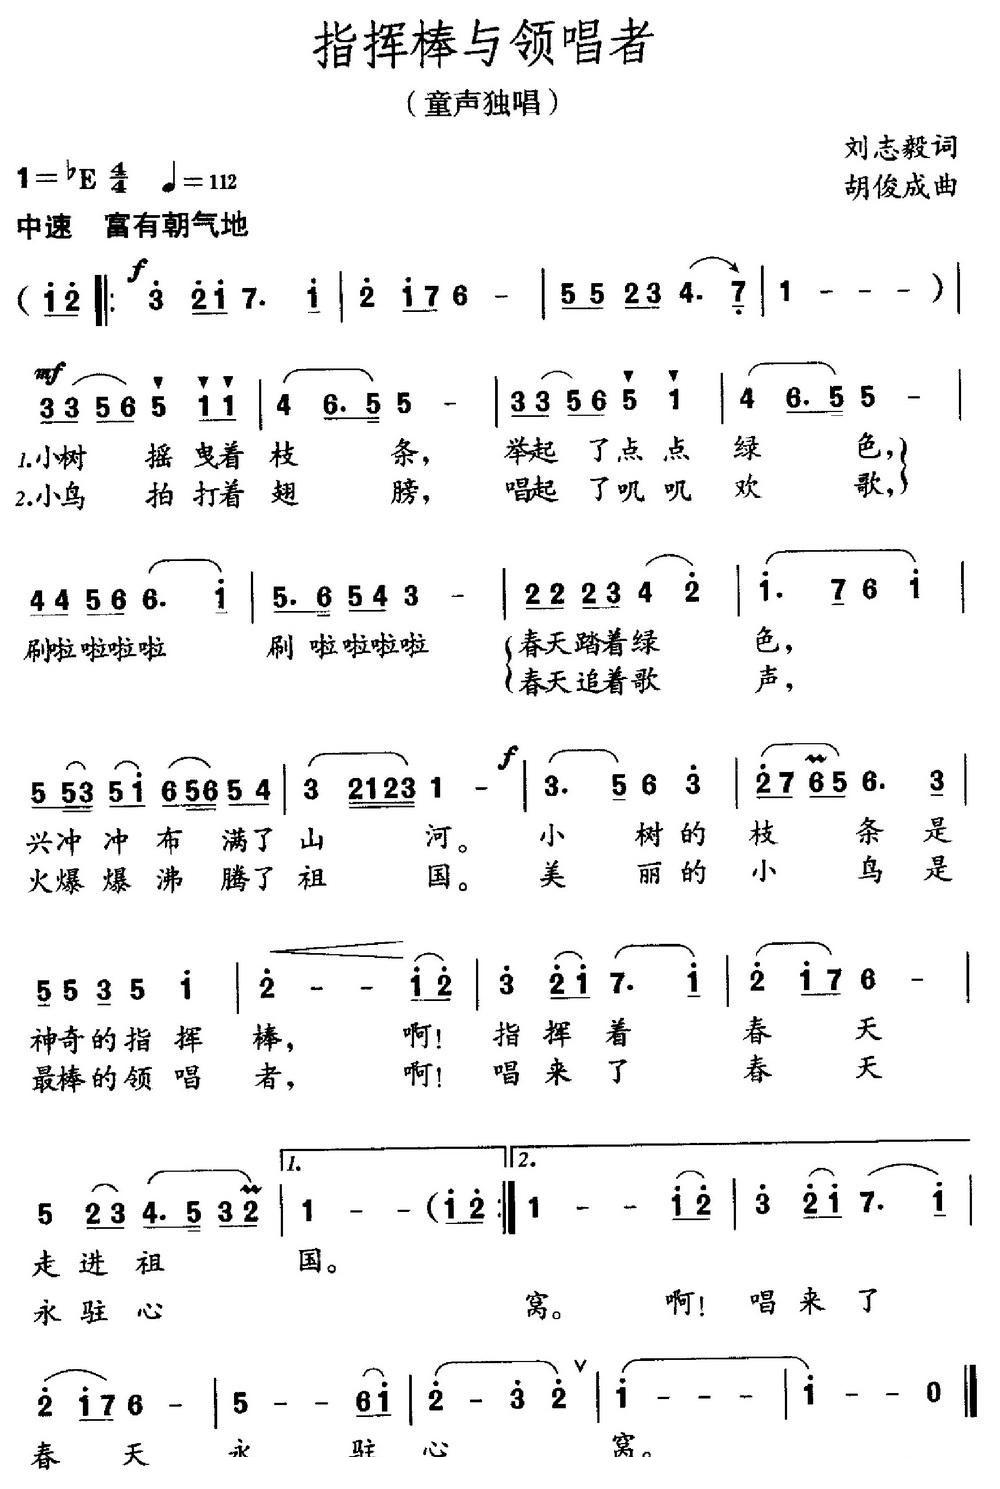 指挥棒与领唱者
（童声独唱）
刘志毅词
1=♭E 4/4 ♩=112
胡俊成曲
中速 富有朝气地
f
( i̇ 2̇ ‖: 3̇ 2̇ i̇ 7. i̇ | 2̇ i̇ 7 6 - | 5 5 2 3 4. 7̣ | 1 - - - ) |
mf
3 3 5 6 5 1 1 | 4 6. 5 5 - | 3 3 5 6 5 1 | 4 6. 5 5 - |
1.小树 摇 曳着 枝 条， 举起 了点 点 绿 色，
2.小鸟 拍 打着 翅 膀， 唱起 了叽 叽 欢 歌，
4 4 5 6 6. i̇ | 5. 6 5 4 3 - | 2 2 2 3 4 2̇ | i̇. 7 6 i̇ |
刷啦啦啦啦 刷 啦啦啦啦 春天踏着绿 色，
春天追着歌 声，
f
5 5 3 5 i̇ 6 5 6 5 4 | 3 2 1 2 3 1 - | 3. 5 6 3̇ | 2̇ 7 6 5 6. 3 |
兴冲 冲 布 满了 山 河。 小 树的 枝 条 是
火爆 爆 沸 腾了 祖 国。 美 丽的 小 鸟 是
5 5 3 5 i̇ | 2̇ - - i̇ 2̇ | 3̇ 2̇ i̇ 7. i̇ | 2̇ i̇ 7 6 - |
神奇的指 挥 棒， 啊！ 指 挥 着 春 天
最棒的领 唱 者， 啊！ 唱 来 了 春 天
1. 2.
5 2 3 4. 5 3 2 | 1 - - ( i̇ 2̇ :‖ 1 - - i̇ 2̇ | 3̇ 2̇ i̇ 7. i̇ |
走 进 祖 国。
永 驻 心 窝。 啊！ 唱 来 了
2̇ i̇ 7 6 - | 5 - - 6 i̇ | 2̇ - 3̇ 2̇ ∨ | i̇ - - - | i̇ - - 0 ‖
春 天 永 驻 心 窝。